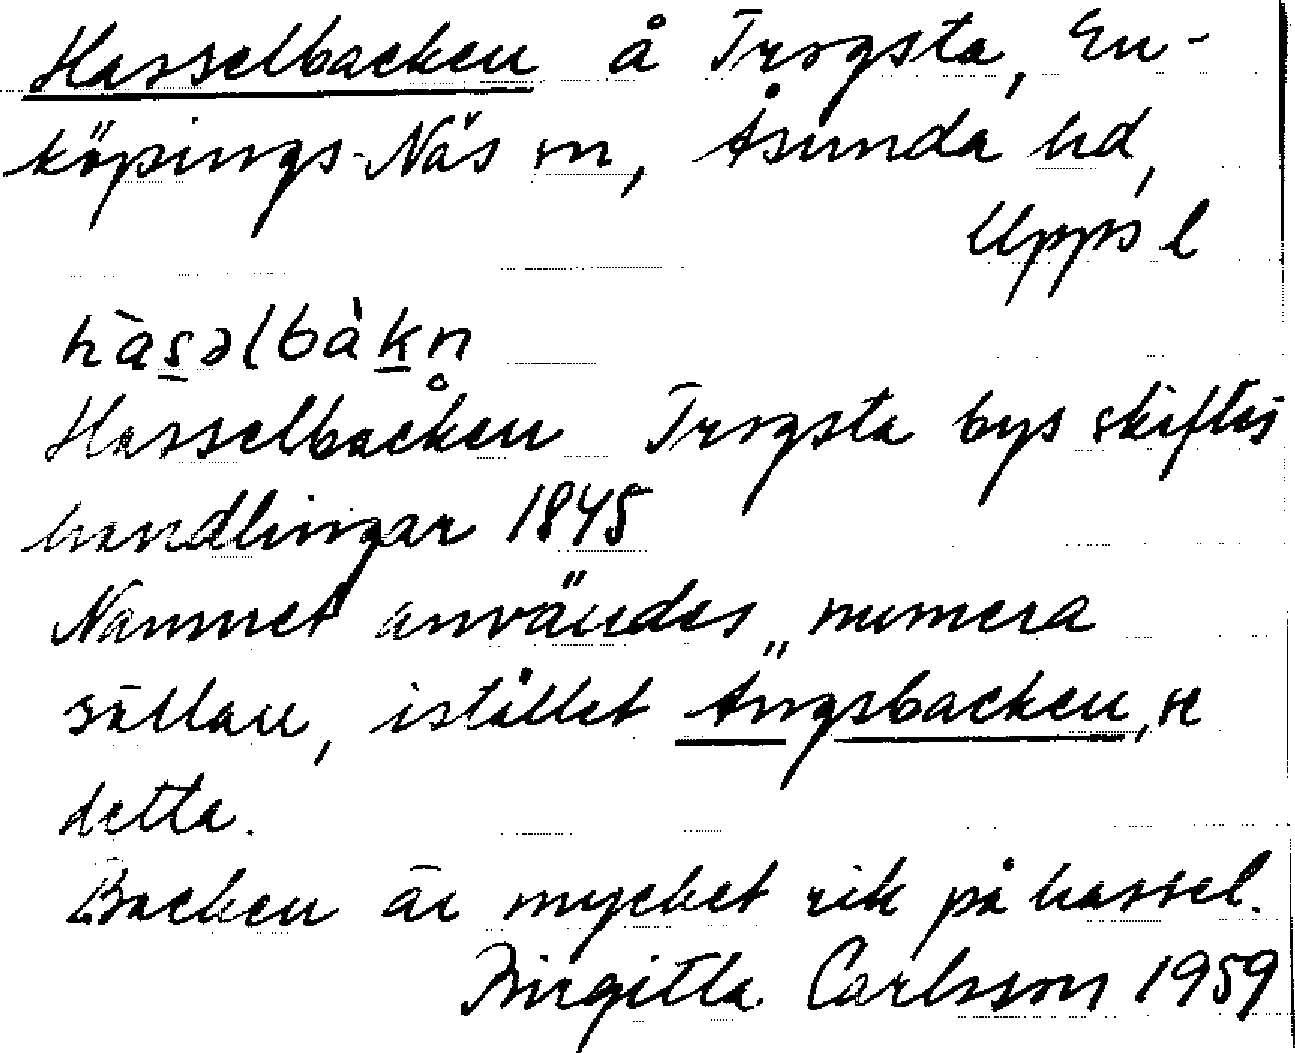 Hasselbacken å Trögsta, En-
köpings-Näs sn, Åsunda hd,
Upps l
hàs̲əlbàk̲n̥
Hasselbacken Trögsta bys skiftes
handlingar 1845
Namnet användes numera
sällan, istället Ängsbacken, se
detta.
Backen är mycket rik på hassel.
Birgitta Carlsson 1959